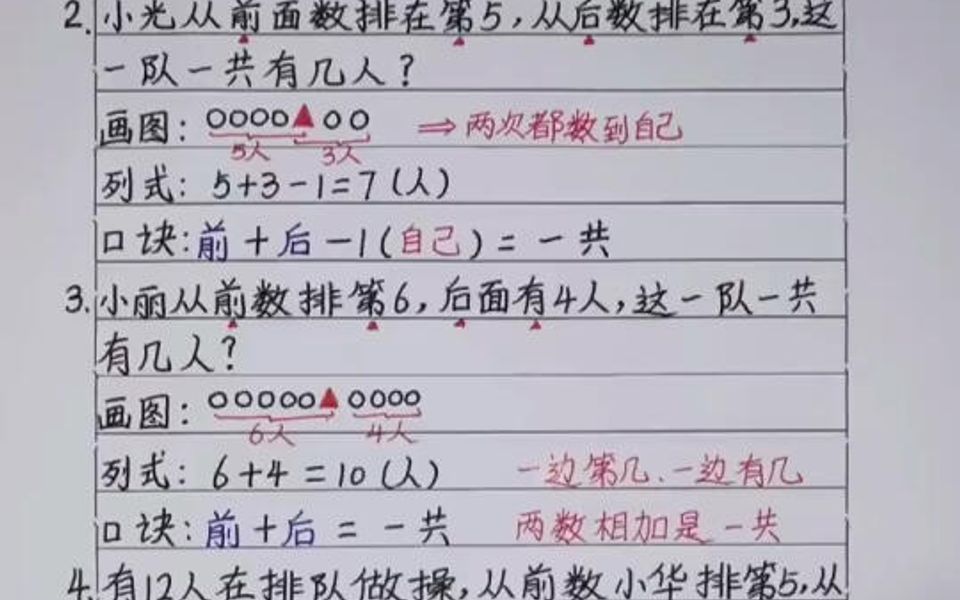 2. 小光从前面数排在第5,从后数排在第3,这
一队一共有几人?
画图: ○○○○▲○○ ⇒两次都数到自己
5人 3人
列式: 5+3-1=7(人)
口诀:前+后-1(自己)=一共
3. 小丽从前数排第6,后面有4人,这一队一共
有几人?
画图: ○○○○○▲○○○○
6人 4人
列式: 6+4=10(人) 一边第几、一边有几
口诀:前+后=一共 两数相加是一共
4. 有12人在排队做操,从前数小华排第5,从